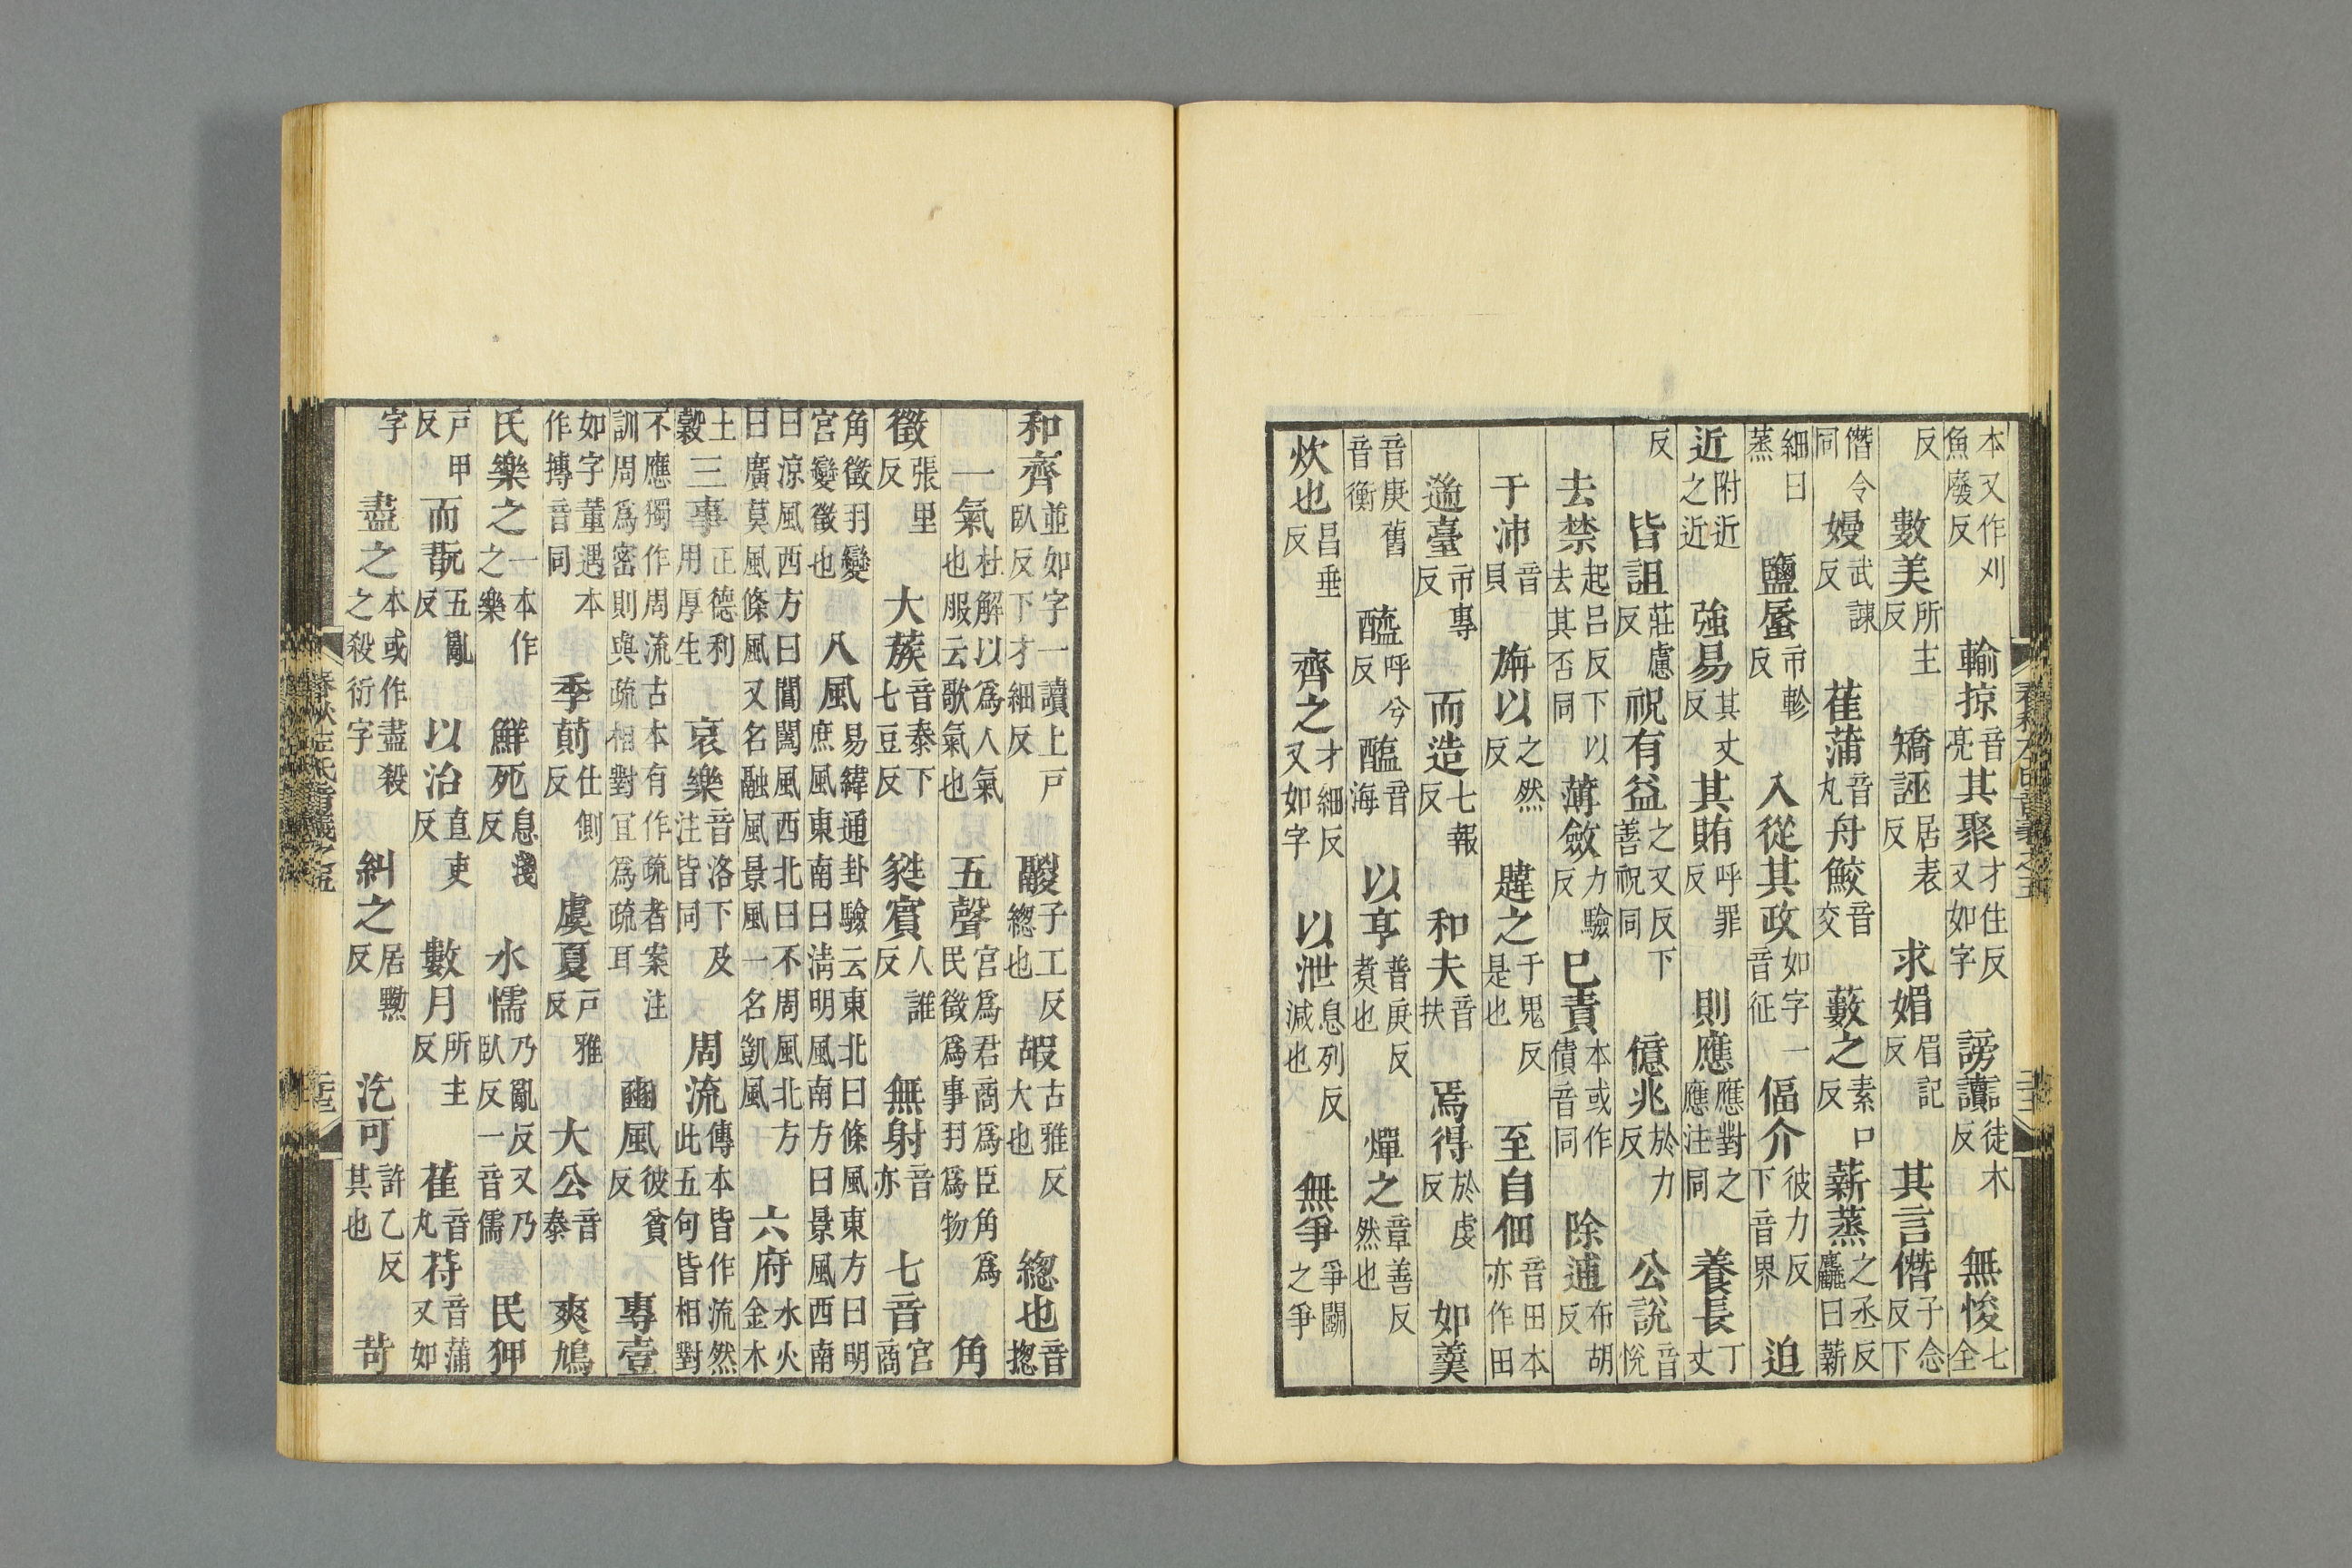 本又作刈魚廢反輸掠音亮其聚才住反又如字謗讟徒木反無悛七全
反數美所主反矯誣居表反求媚眉記反其言僭子念反下
僭令同嫚武諫反萑蒲音丸舟鮫音交藪之素口反薪蒸之丞反麤曰薪
細曰蒸鹽蜃市軫反入從其政如字一音征偪介彼力反下音界迫
近附近之近強易其丈反其賄呼罪反則應應對之應注同養長丁丈
反皆詛莊慮反祝有益之又反下善祝同億兆於力反公說音悅
去禁起呂反下以去其否同薄斂力驗反已責本或作債音同除逋布胡反
于沛音貝旃以之然反韙之于鬼反是也至自佃音田本亦作田
遄臺市專反而造七報反和夫音扶焉得於虔反如羹
音庚舊音衡醯呼兮反醢音海以亨普庚反煑也燀之章善反然也
炊也昌垂反齊之才細反又如字以泄息列反減也無爭爭鬭之爭
春秋左氏音義之五
和齊並如字一讀上戶臥反下才細反鬷子工反總也嘏古雅反大也總也音揔
一氣杜解以為人氣也服云歌氣也五聲宮為君商為臣角為民徵為事羽為物角
徵張里反大蔟音泰下七豆反蕤賓人誰反無射音亦七音宮商
角徵羽變宮變徵也八風易緯通卦驗云東北曰條風東方曰明庶風東南曰淸明風南方曰景風西南
曰涼風西方曰閶闔風西北曰不周風北方曰廣莫風條風又名融風景風一名凱風六府水火金木
土穀三事正德利用厚生哀樂音洛下及注皆同周流傳本皆作流然此五句皆相對
不應獨作周流古本有作疏者案注訓周為密則與疏相對宜為疏耳豳風彼貧反專壹
如字董遇本作摶音同季萴仕側反虞夏戶雅反大公音泰爽鳩
氏樂之一本作之樂鮮死息淺反水懦乃亂反又乃臥反一音儒民狎
戶甲反而翫五亂反以治直吏反數月所主反萑音丸苻音蒲又如
字盡之本或作盡殺之殺衍字糾之居黝反汔可許乙反其也苛
春秋左氏音義之五